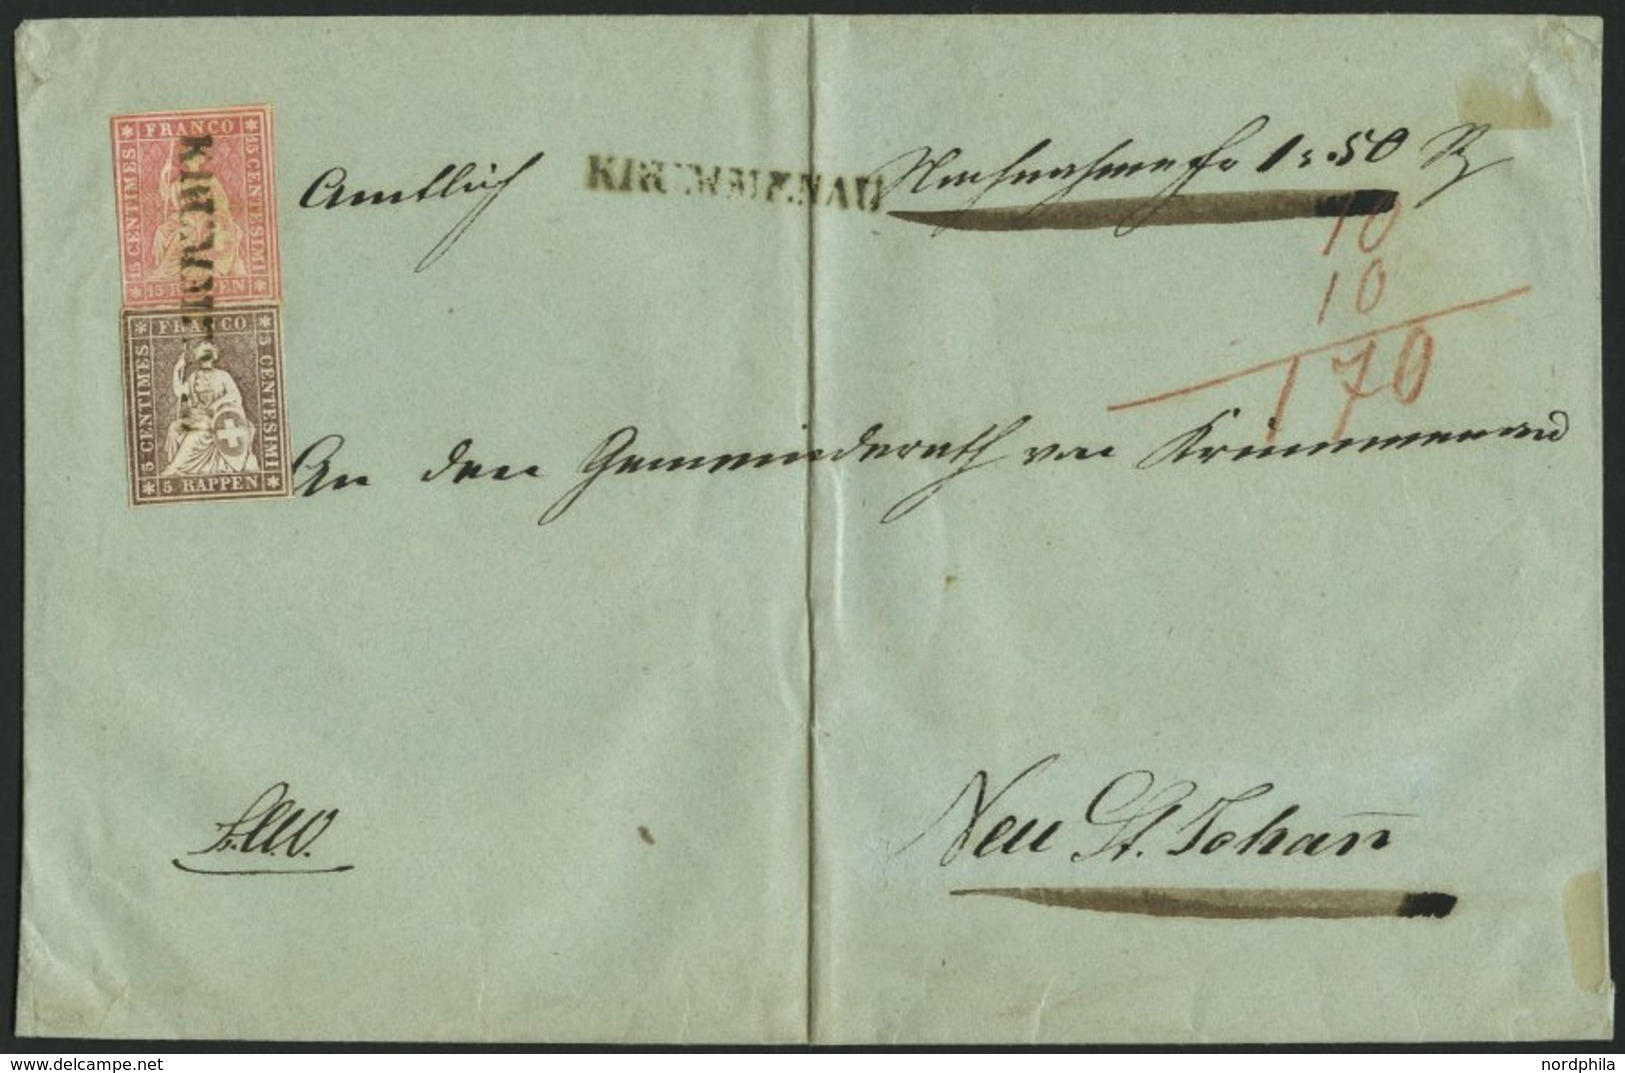 FRANCO
15 CENTIMES
15 CENTESIMI
15 RAPPEN
FRANCO
5 CENTIMES
5 CENTESIMI
5 RAPPEN
Amtlich KRUMMENAU Nachnahme fr 1 : 50 Rp
10
10
170
An den Gemeinderath von Krummenau
Neu St. Johann
nordphila
nordphila.com